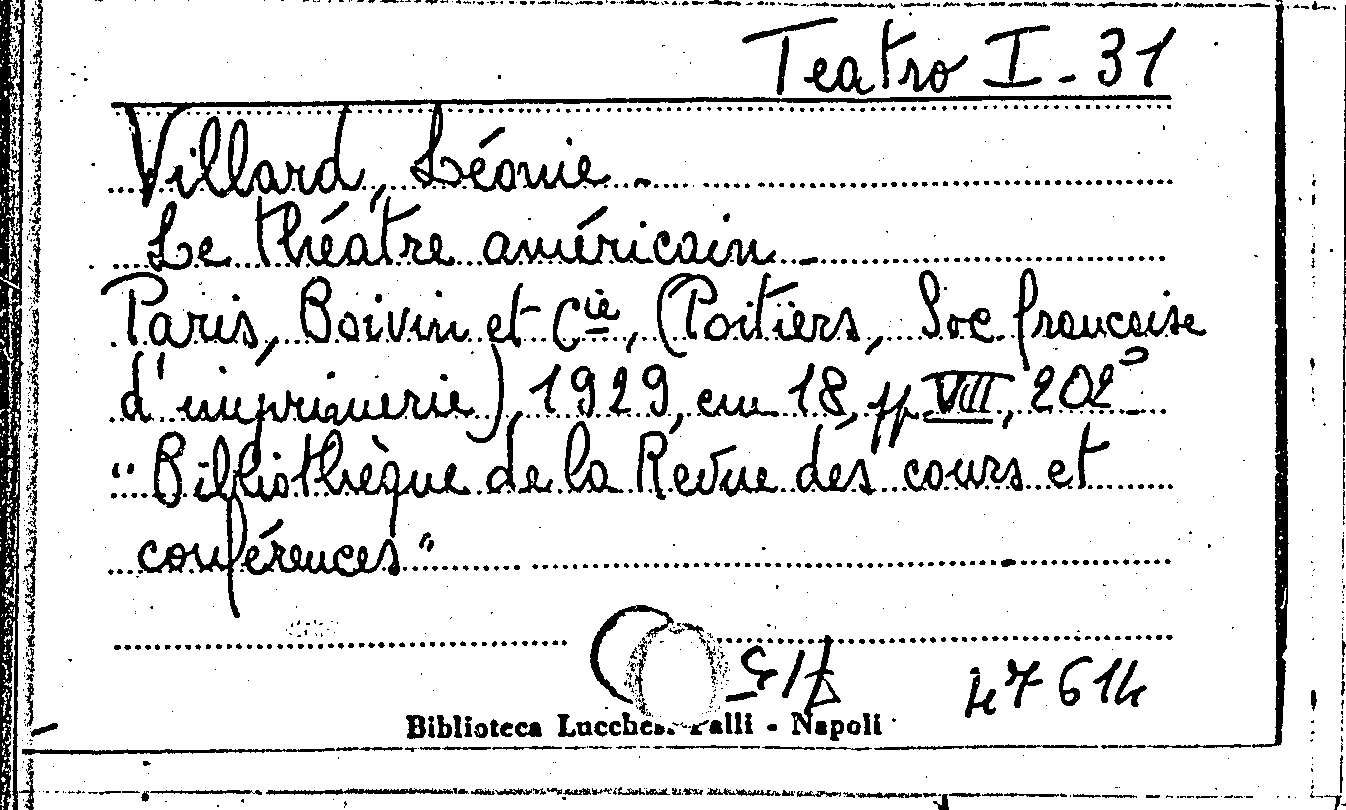 Teatro I - 31
Villard, Léonie -
Le théâtre américain -
Paris, Boivin et Cie, (Poitiers, Soc française
d'imprimerie), 1929, cm 18, pp VIII, 202
"Bibliothèque de la Revue des cours et
conférences"
47614
Biblioteca Lucchesi Palli - Napoli